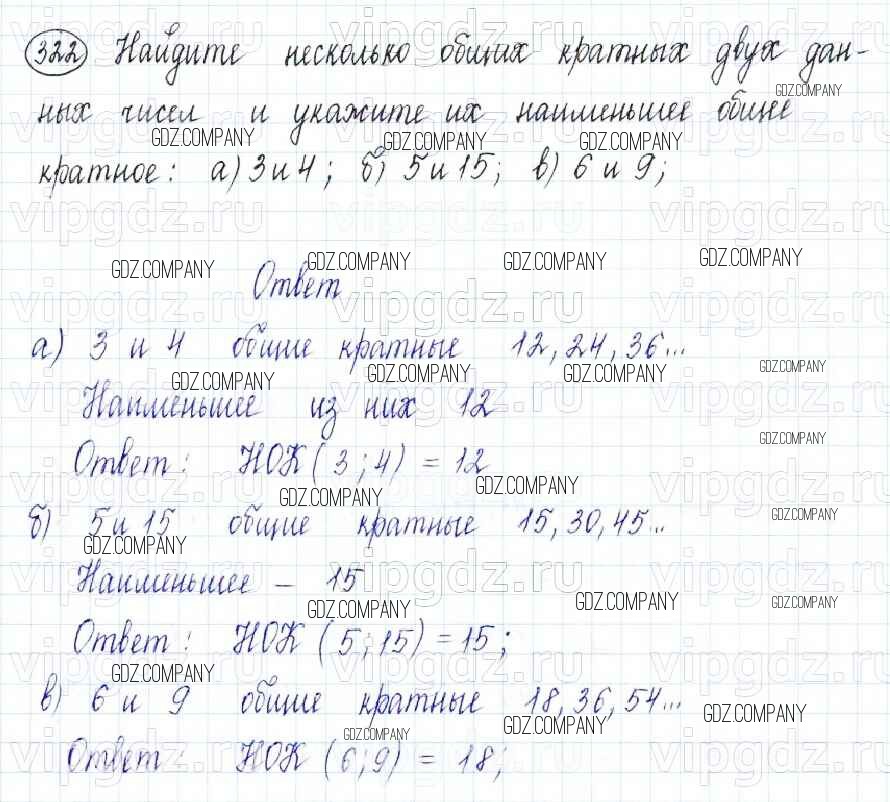 322 Найдите несколько общих кратных двух дан-
ных чисел и укажите их наименьшее общее
кратное: а) 3 и 4; б) 5 и 15; в) 6 и 9;
Ответ
а) 3 и 4 общие кратные 12, 24, 36...
Наименьшее из них 12
Ответ: НОК (3; 4) = 12
б) 5 и 15 общие кратные 15, 30, 45...
Наименьшее – 15
Ответ: НОК (5; 15) = 15;
в) 6 и 9 общие кратные 18, 36, 54...
Ответ: НОК (6; 9) = 18;
GDZ.COMPANY
vipgdz.ru